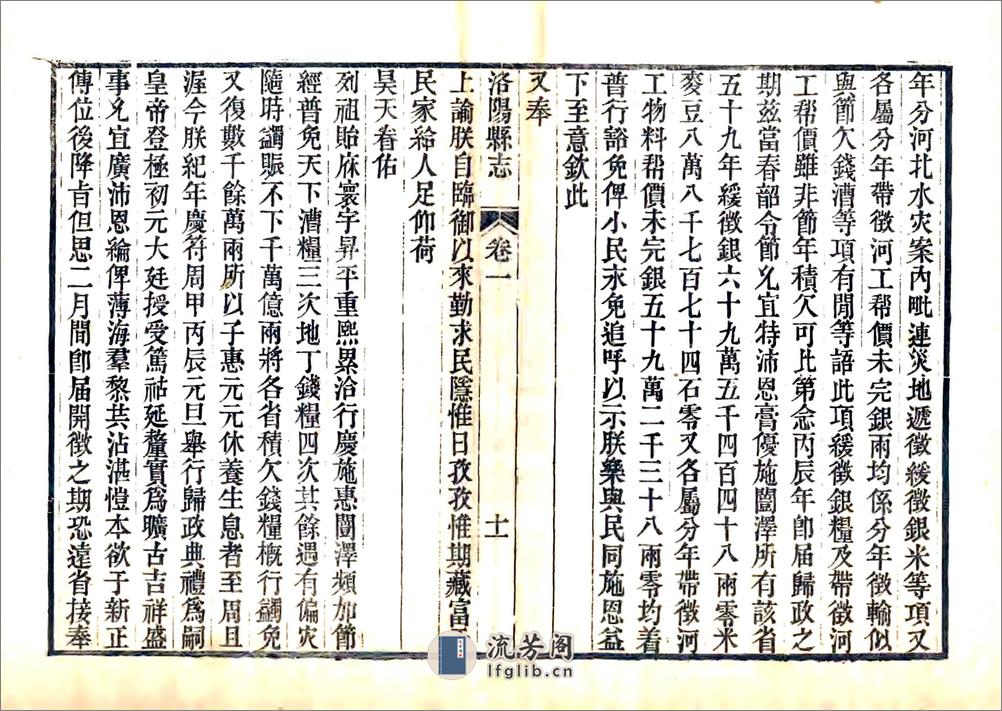 年分河北水灾案內毗連災地遞徵緩徵銀米等項又
各屬分年帶徵河工帮價未完銀兩均係分年徵輸似
與節欠錢漕等項有閒等語此項緩徵銀糧及帶徵河
工帮價雖非節年積欠可比第念丙辰年卽届歸政之
期茲當春韶令節尤宜特沛恩膏優施闓澤所有該省
五十九年緩徵銀六十九萬五千四百四十八兩零米
麥豆八萬八千七百七十四石零又各屬分年帶徵河
工物料帮價未完銀五十九萬二千三十八兩零均着
普行豁免俾小民永免追呼以示朕樂與民同施恩益
下至意欽此
又奉
洛陽縣志 卷一 十一
上諭朕自臨御以來勤求民隱惟日孜孜惟期藏富于
民家給人足仰荷
昊天眷佑
列祖貽庥寰宇昇平重熙累洽行慶施惠闓澤頻加節
經普免天下漕糧三次地丁錢糧四次其餘遇有偏灾
隨時蠲賑不下千萬億兩將各省積欠錢糧槪行蠲免
又復數千餘萬兩所以子惠元元休養生息者至周且
渥今朕紀年慶符周甲丙辰元旦舉行歸政典禮爲嗣
皇帝登極初元大廷授受篤祜延釐實爲曠古吉祥盛
事尤宜廣沛恩綸俾薄海羣黎共沾湛愷本欲于新正
傳位後降旨但思二月間卽届開徵之期恐遠省接奉
流芳阁
lfglib.cn